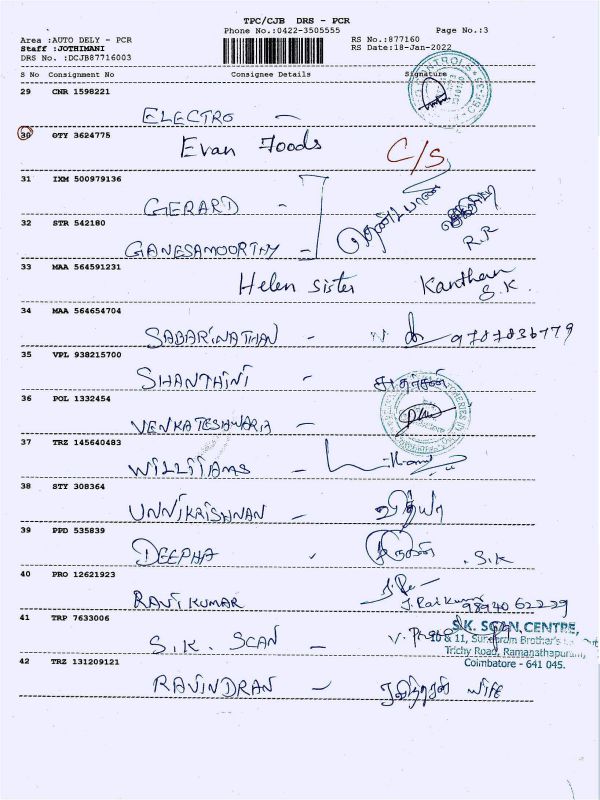 TPC/CJB DRS - PCR
Phone No.:0422-3505555 Page No.:3
Area :AUTO DELY - PCR RS No.:877160
Staff :JOTHIMANI RS Date:18-Jan-2022
DRS No. :DCJB87716003
S No Consignment No Consignee Details Signature
29 CNR 1598221
ELECTRO -
30 GTY 3624775
Evan Foods C/S
31 IXM 500979136
GERARD -
32 STR 542180
R.R
GANESAMOORTHY -
33 MAA 564591231
Helen sister Kanthan
S.K.
34 MAA 564654704
SABARINATHAN - 9787836779
35 VPL 938215700
SHANTHINI -
36 POL 1332454
VENKATESHWARA -
37 TRZ 145640483
WILLIAMS -
38 STY 308364
UNNIKRISHNAN - வித்யா
39 PPD 535839
DEEPHA S.K
40 PRO 12621923
RAVI KUMAR J. Raj Kumar 9894062229
41 TRP 7633006
S.K. SCAN CENTRE,
S.K. SCAN - & 11, Brother's
Trichy Road, Ramanathapuram,
Coimbatore - 641 045.
42 TRZ 131209121
RAVINDRAN - ரவிந்ரன் wife